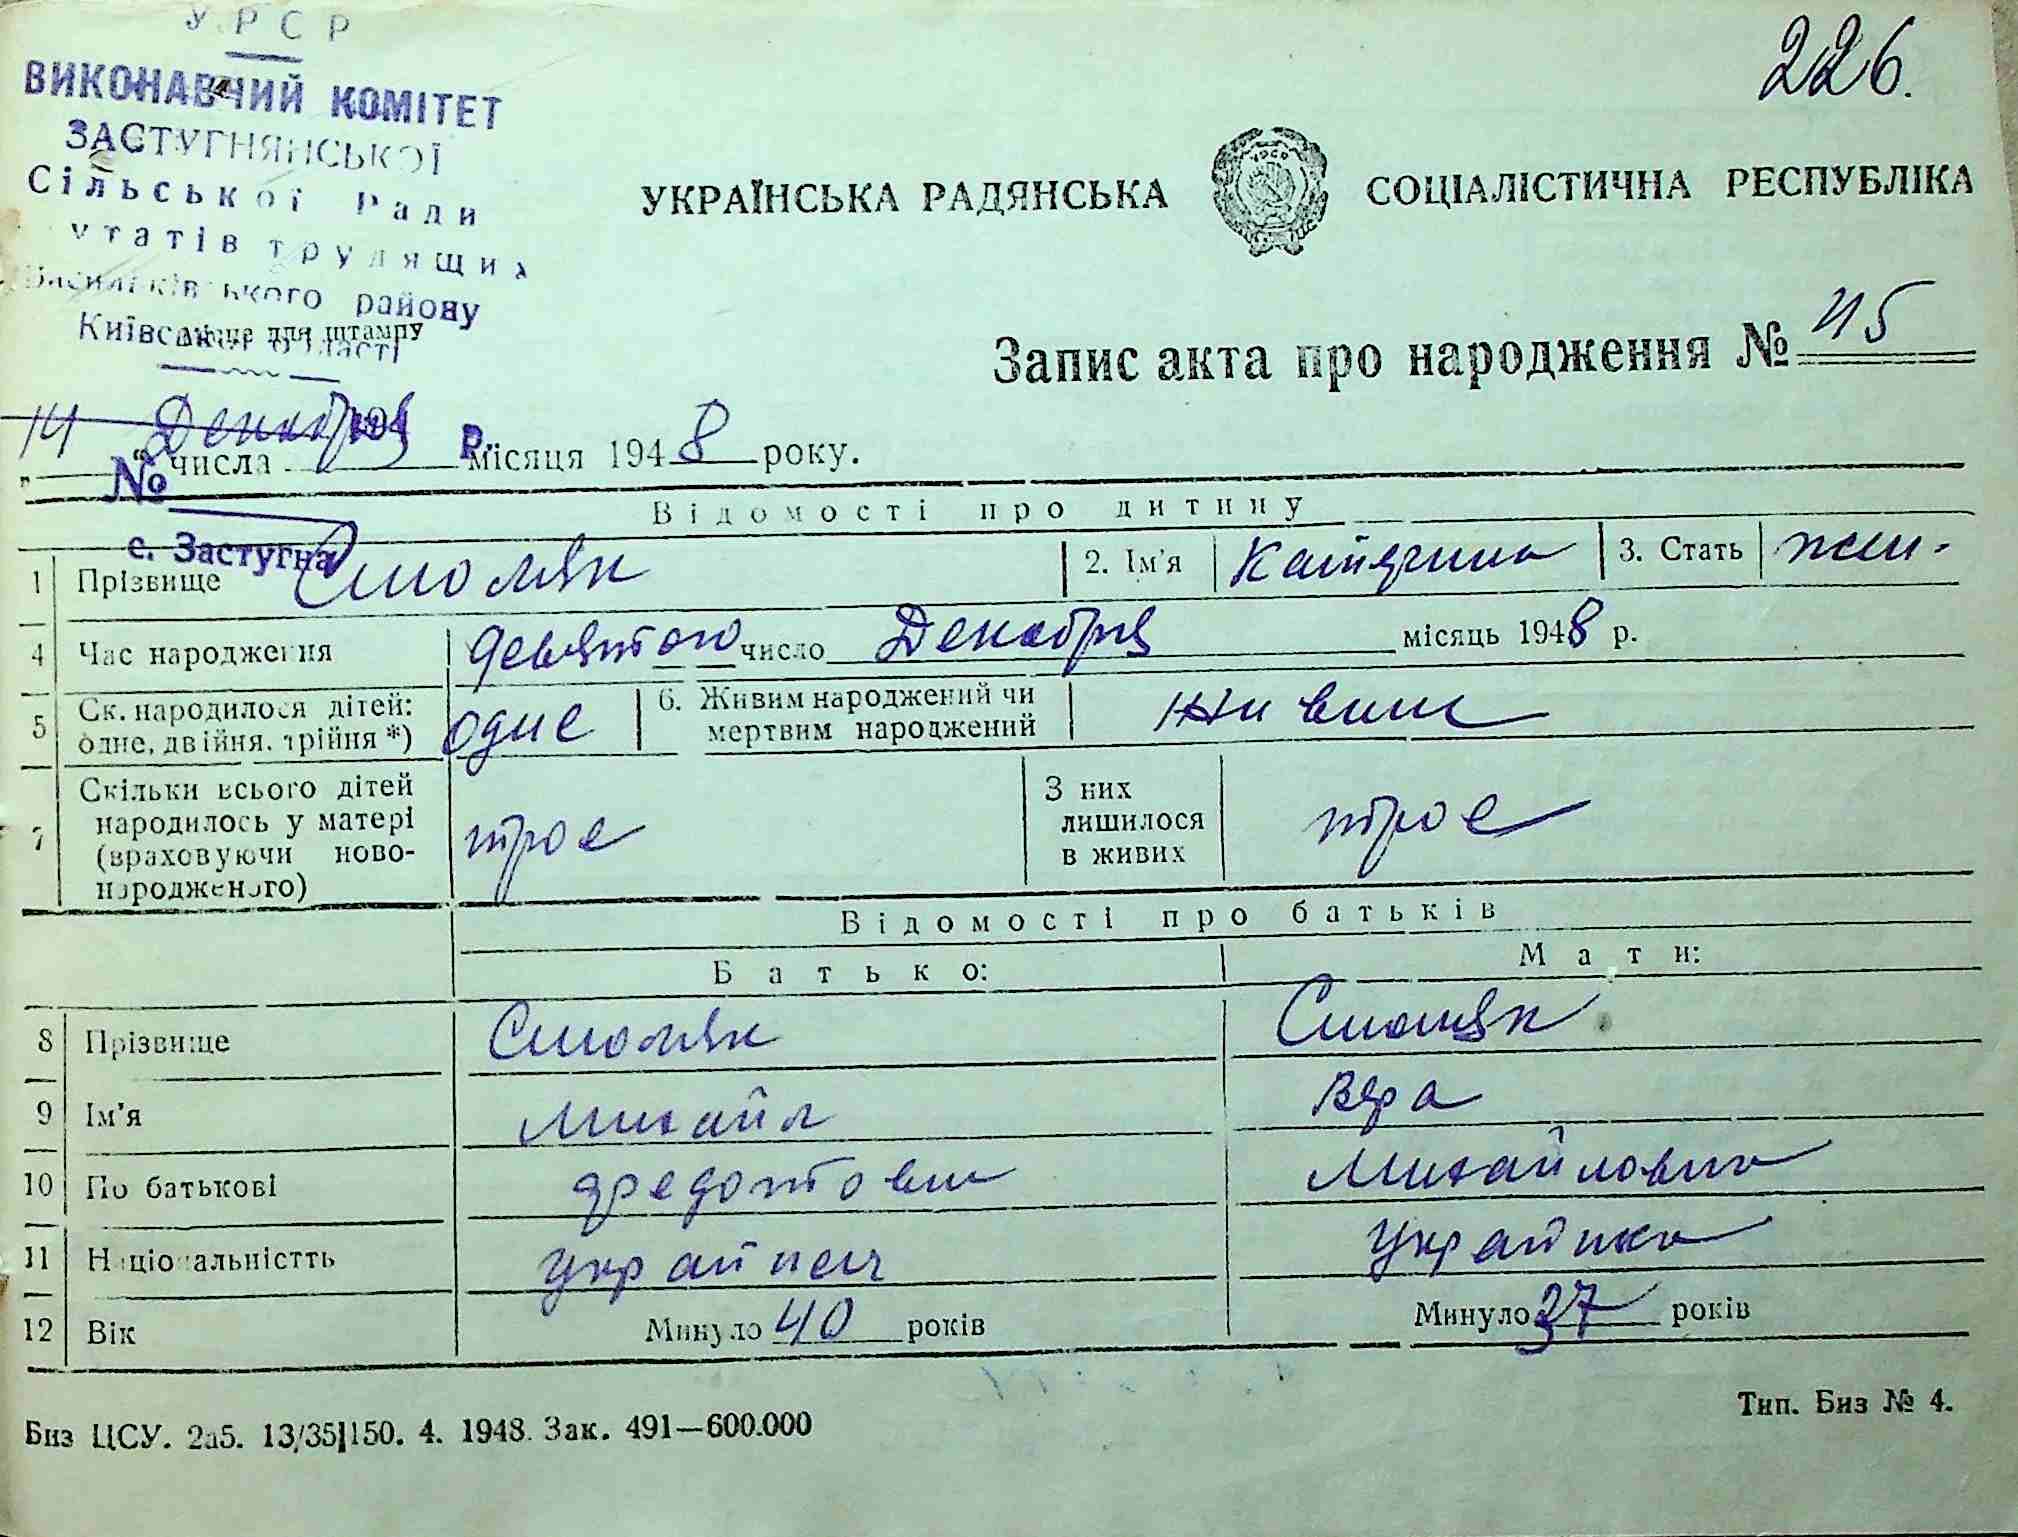 УРСР
ВИКОНАВЧИЙ КОМІТЕТ
ЗАСТУГНЯНСЬКОЇ
Сільської Ради
утатів трудящих
Васильківського району
Київської області
Місце для штампу
226.
УКРАЇНСЬКА РАДЯНСЬКА СОЦІАЛІСТИЧНА РЕСПУБЛІКА
Запис акта про народження № 45
„14“ числа Декабря місяця 1948 року.
194 Р.
№
с. Застугна
Відомості про дитину
1 Прізвище Смоляк 2. Ім'я Катерина 3. Стать жен.
4 Час народження девятого число Декабря місяць 1948 р.
5 Ск. народилося дітей: одне, двійня, трійня *) одне 6. Живим народжений чи мертвим народжений живим
7 Скільки всього дітей народилось у матері (враховуючи ново-народженого) троє З них лишилося в живих троє
Відомості про батьків
Батько: Мати:
8 Прізвище Смоляк Смоляк
9 Ім'я Михайл Вера
10 По батькові Федотови Михайловна
11 Національністть украйнец Украйнка
12 Вік Минуло 40 років Минуло 37 років
Биз ЦСУ. 2а5. 13/35|150. 4. 1948. Зак. 491—600.000
Тип. Биз № 4.